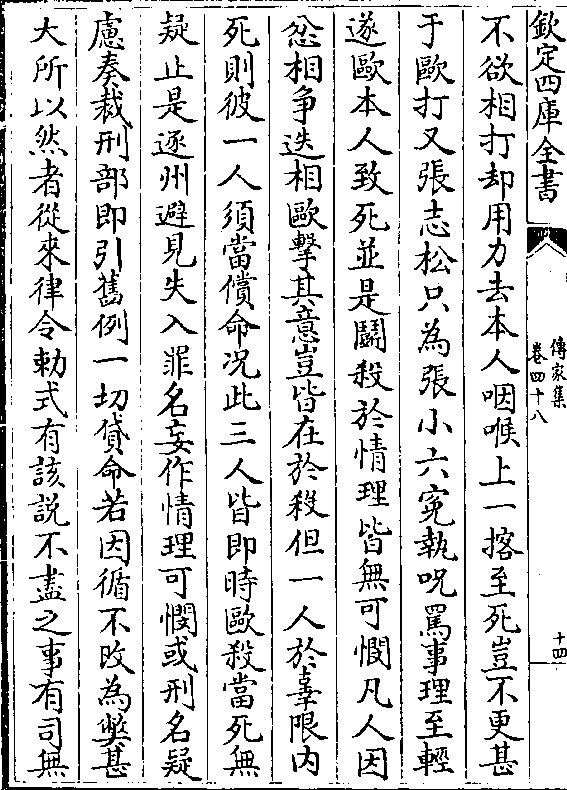 欽定四庫全書
傳家集
卷四十八
十四
不欲相打却用力去本人咽喉上一搭至死豈不更甚
于歐打又張志松只為張小六寃執呪罵事理至輕
遂歐本人致死並是鬬殺於情理皆無可憫凡人因
忿相争迭相歐擊其意豈皆在於殺但一人於辜限内
死則彼一人須當償命况此三人皆即時歐殺當死無
疑止是逐州避見失入罪名妄作情理可憫或刑名疑
慮奏裁刑部即引舊例一切貸命若因循不改為弊甚
大所以然者從來律令勅式有該説不盡之事有司無